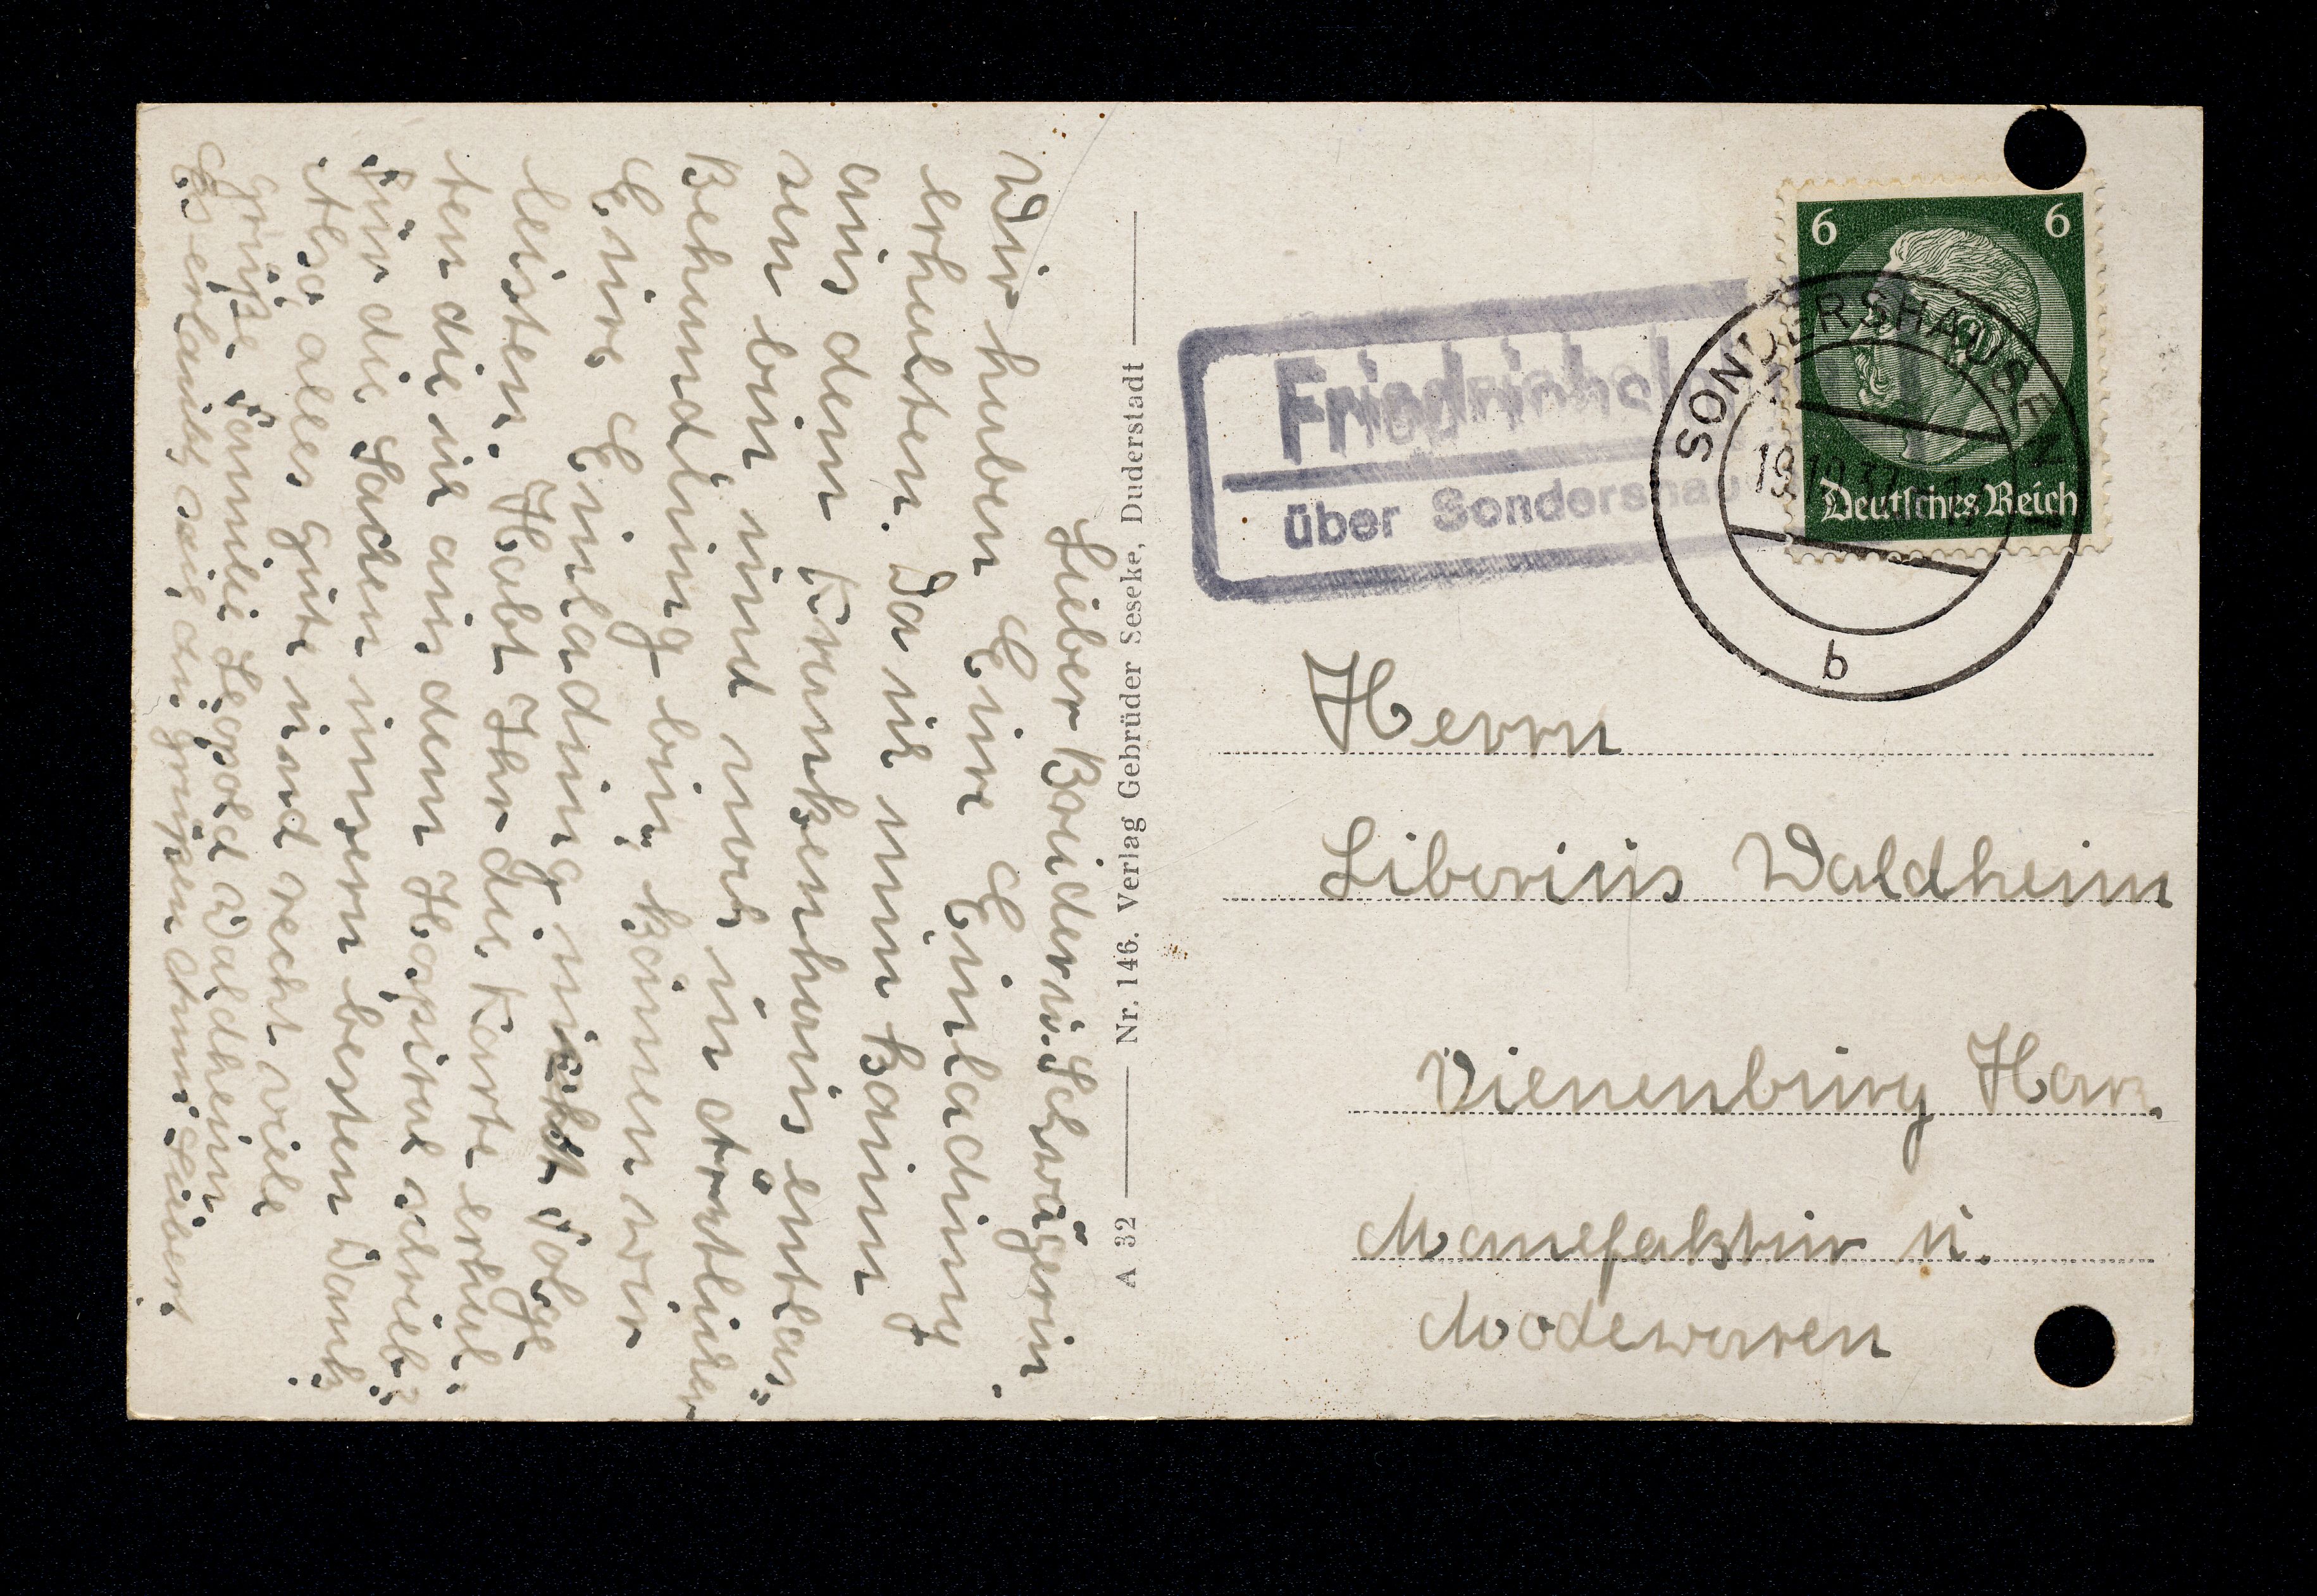 Lieber Bruder u. Schwägerin.
Wir haben Eure Einladung
erhalten. Da ich nun kaum
aus dem Krankenhaus entlas-
sen bin und noch in ärtlicher
Behandlung bin, können wir
Eure Einladung nicht Folge
leisten. Habt Ihr die Karte erhal-
ten die ich aus dem Hospital schrieb,
für die Sachen unsern besten Dank,
alles gute und recht viele
Grüße Familie Leopold Waldheim
A 32 Nr. 146. Verlag Gebrüder Seseke, Duderstadt
6 6
Deutsches Reich
SONDERSHAUSEN
b
über
Herrn
Liberius Waldheim
Vienenburg Harz.
Manefaktur u.
Modewaren